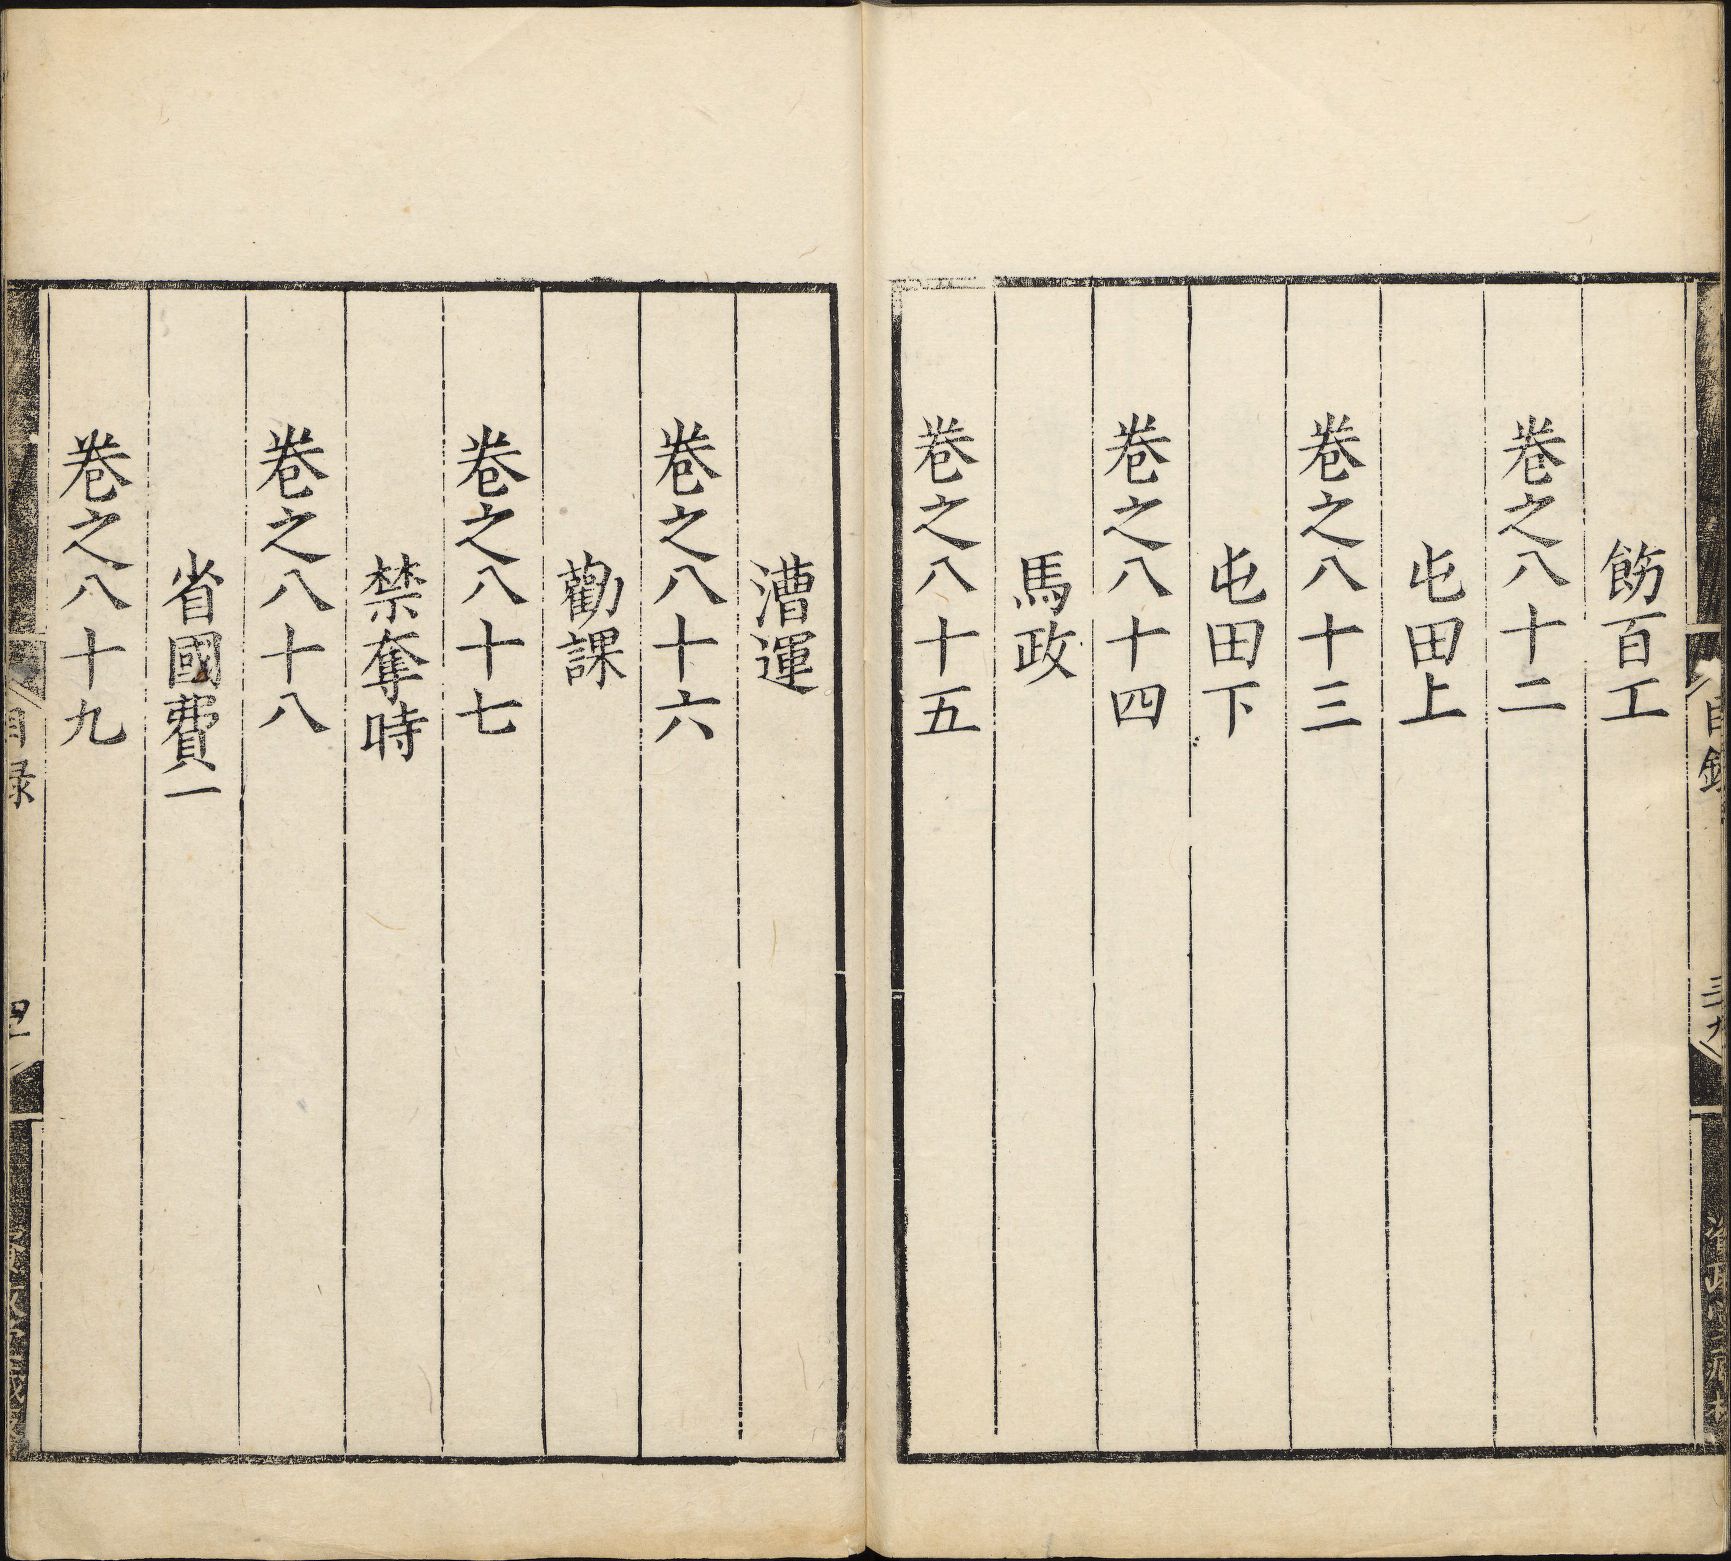 飭百工
卷之八十二
屯田上
卷之八十三
屯田下
卷之八十四
馬政
卷之八十五
漕運
卷之八十六
勸課
卷之八十七
禁奪時
卷之八十八
省國費一
卷之八十九
目録